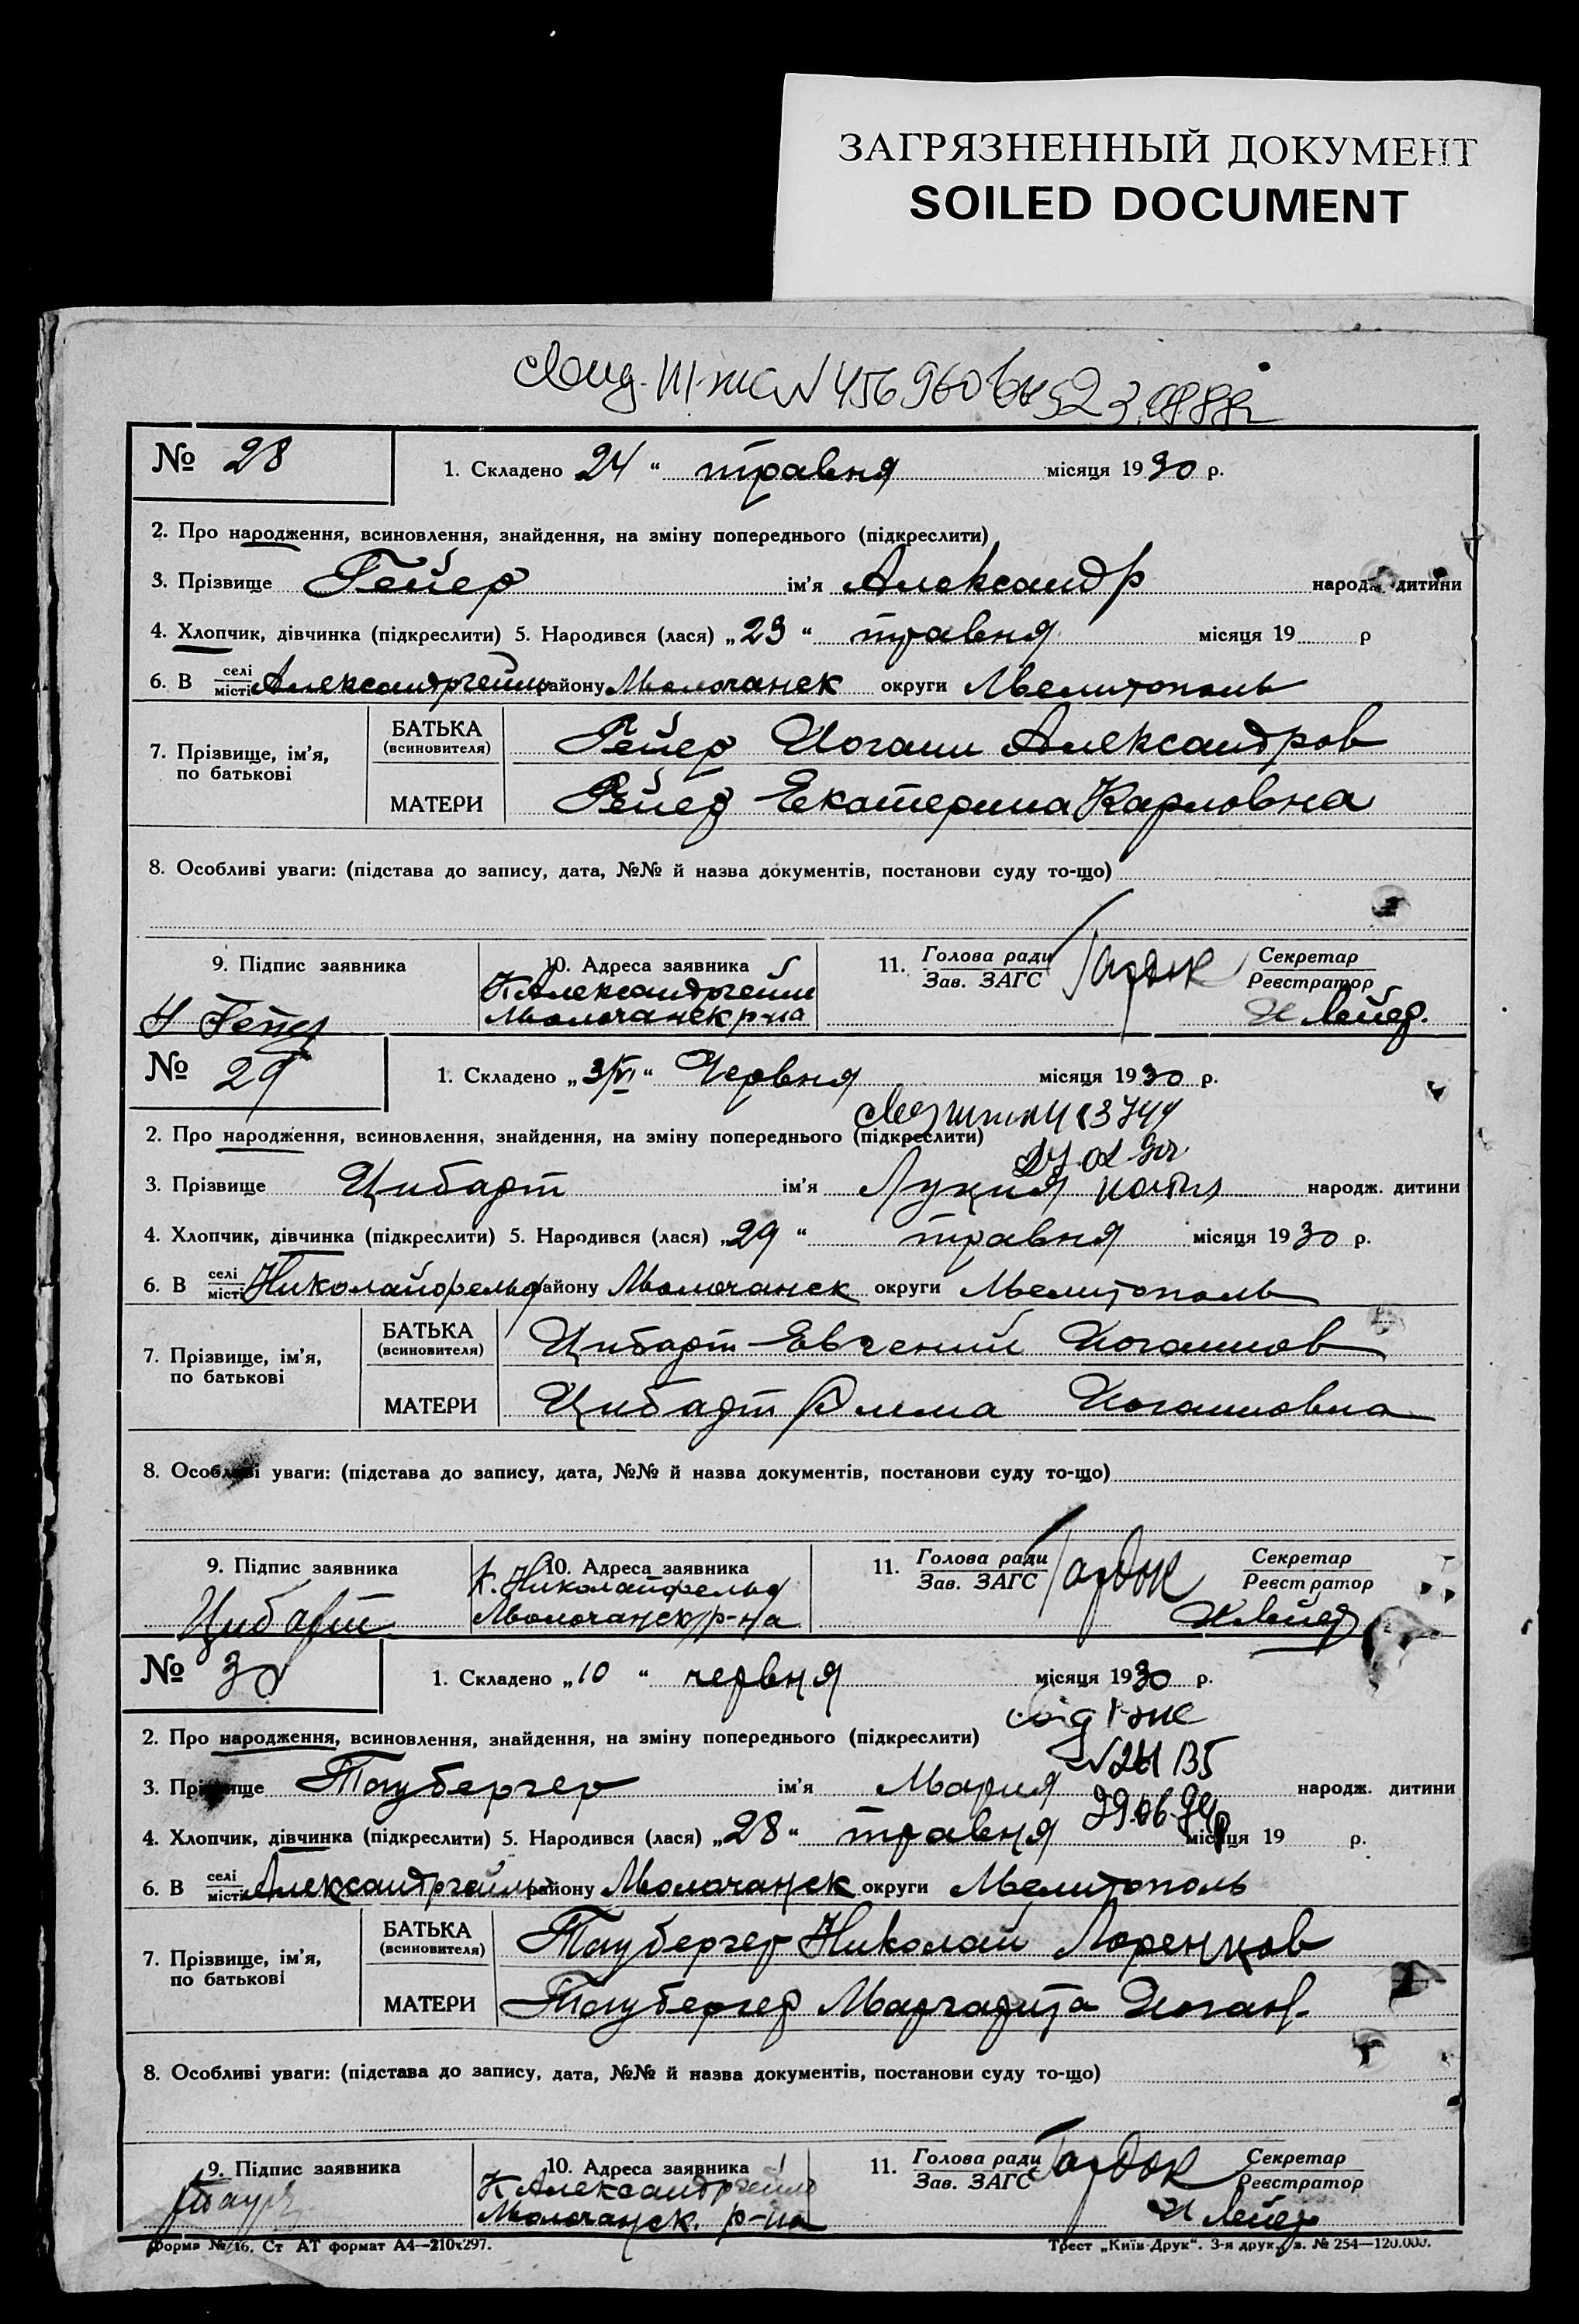 ЗАГРЯЗНЕННЫЙ ДОКУМЕНТ
SOILED DOCUMENT
№ 28
1. Складено 24 " травня місяця 1930 р.
2. Про народження, всиновлення, знайдення, на зміну попереднього (підкреслити)
3. Прізвище Гейер ім'я Александр народж. дитини
4. Хлопчик, дівчинка (підкреслити) 5. Народився (лася) „23 “ травня місяця 19 р
6. В селі місті Александргейм району Молочанск округи Мелитополь
7. Прізвище, ім'я, по батькові
БАТЬКА (всиновителя) Гейер Иоганн Александров
МАТЕРИ Гейер Екатерина Карловна
8. Особливі уваги: (підстава до запису, дата, №№ й назва документів, постанови суду то-що)
9. Підпис заявника
10. Адреса заявника
11. Голова ради Зав. ЗАГС
Секретар Реестратор
К Александргейм
Молочанск р-на
№ 29
1. Складено „3/VI“ Червня місяця 1930 р.
2. Про народження, всиновлення, знайдення, на зміну попереднього (підкреслити)
3. Прізвище Цибарт ім'я Лукия народж. дитини
4. Хлопчик, дівчинка (підкреслити) 5. Народився (лася) „29 “ травня місяця 1930 р.
6. В селі місті Николайфельд району Молочанск округи Мелитополь
7. Прізвище, ім'я, по батькові
БАТЬКА (всиновителя) Цибарт Евгений Иоганнов
МАТЕРИ Цибарт Иоганновна
8. Особливі уваги: (підстава до запису, дата, №№ й назва документів, постанови суду то-що)
9. Підпис заявника
10. Адреса заявника
11. Голова ради Зав. ЗАГС
Секретар Реестратор
Цибарт
К. Николайфельд
Молочанск р-на
№ 30
1. Складено „10 “ червня місяця 1930 р.
2. Про народження, всиновлення, знайдення, на зміну попереднього (підкреслити)
3. ПрізвищеΤαубергер ім'я Мария народж. дитини
4. Хлопчик, дівчинка (підкреслити) 5. Народився (лася) „28“ травня місяця 19 р.
6. В селі місті Александргейм району Молочанск округи Мелитополь
7. Прізвище, ім'я, по батькові
БАТЬКА (всиновителя) Таубергер Николай Лоренцов
МАТЕРИ Таубергер Маргарита Иоган.
8. Особливі уваги: (підстава до запису, дата, №№ й назва документів, постанови суду то-що)
9. Підпис заявника
10. Адреса заявника
11. Голова ради Зав. ЗАГС
Секретар Реестратор
К Александргейм
Молочанск. р-на
Форма № 16. Ст АТ формат А4—210х297.
Трест „Київ-Друк“. 3-я друк., з. № 254—120.000.